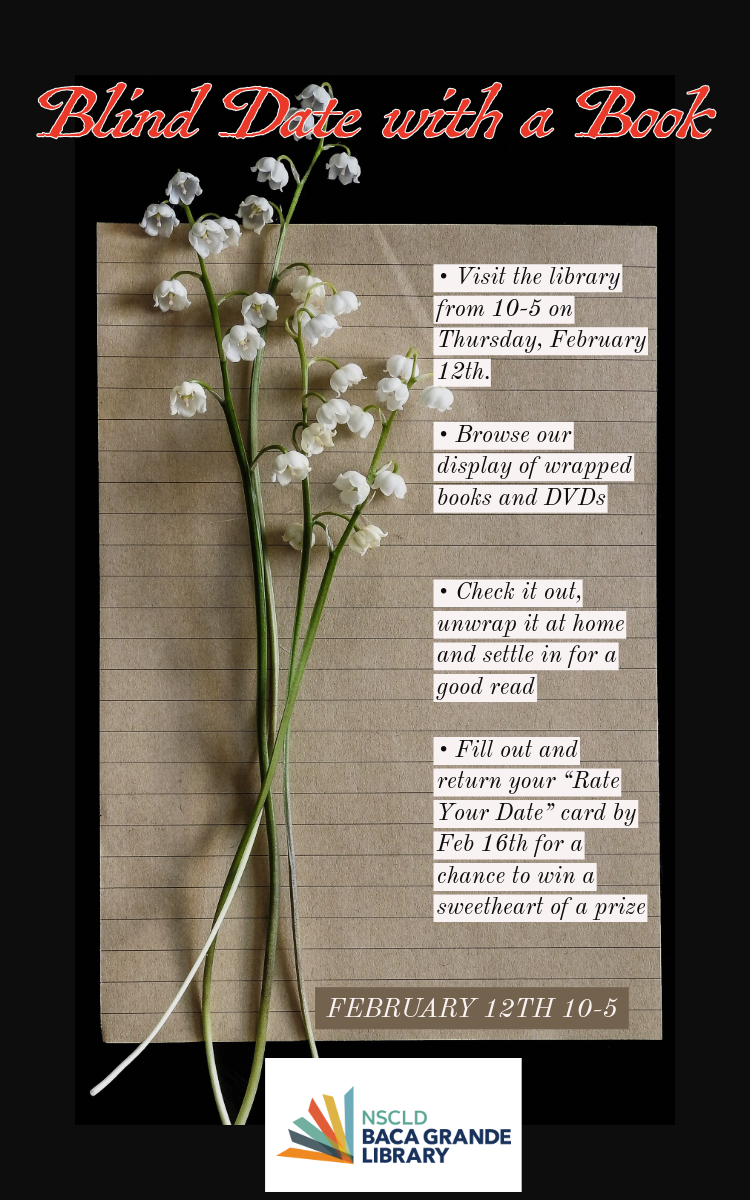 Blind Date with a Book
• Visit the library
from 10-5 on
Thursday, February
12th.
• Browse our
display of wrapped
books and DVDs
• Check it out,
unwrap it at home
and settle in for a
good read
• Fill out and
return your “Rate
Your Date” card by
Feb 16th for a
chance to win a
sweetheart of a prize
FEBRUARY 12TH 10-5
NSCLD
BACA GRANDE
LIBRARY